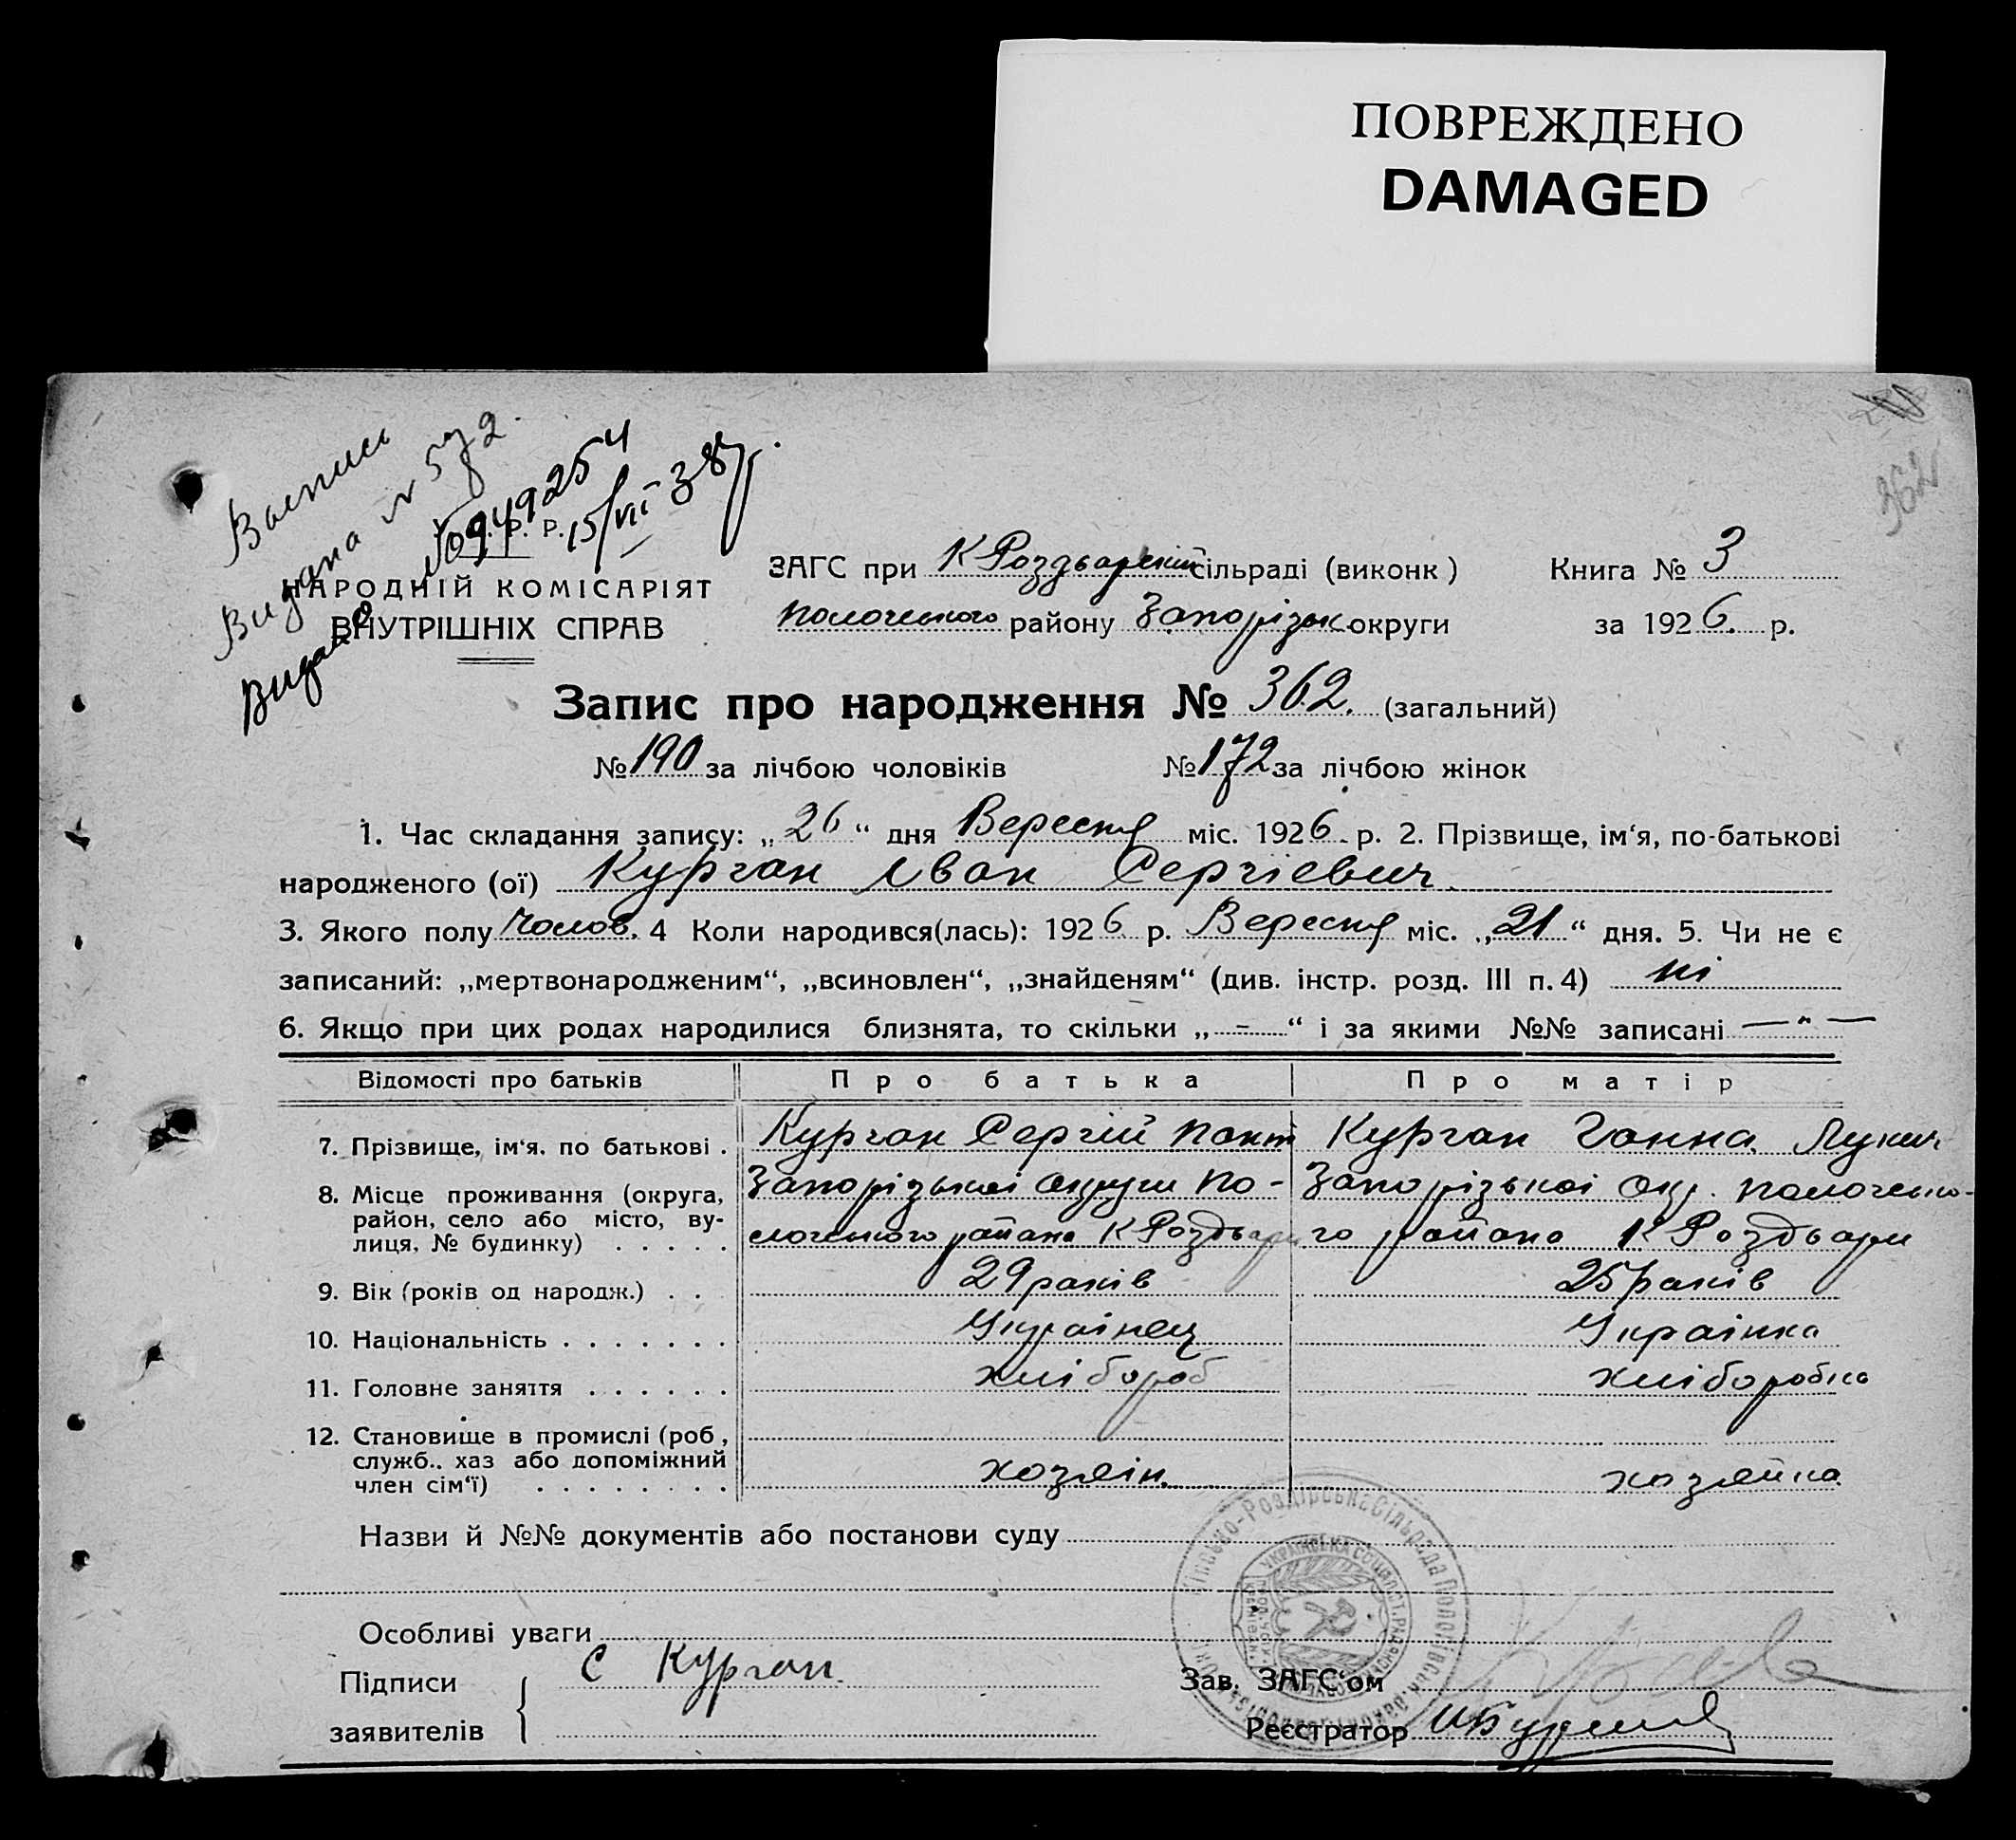 ПОВРЕЖДЕНО
DAMAGED
362
Выпись
Видана № 572.
№0949254
15/VII 38 г.
Видано
Р. Р.
НАРОДНІЙ КОМІСАРІЯТ
ВНУТРІШНІХ СПРАВ
ЗАГС при К Роздварській сільраді (виконк) Книга № 3
Пологського району Запорізьк округи за 1926. р.
Запис про народження № 362. (загальний)
№ 190 за лічбою чоловіків № 172 за лічбою жінок
1. Час складання запису: „26“ дня Вересня міс. 1926 р. 2. Прізвище, ім‘я, по-батькові
народженого (ої) Курган Іван Сергіевич
3. Якого полу Чолов. 4 Коли народився(лась): 1926 р. Вересня міс. „21“ дня. 5. Чи не є
записаний: „мертвонародженим“, „всиновлен“, „знайденям“ (див. інстр. розд. III п. 4) ні
6. Якщо при цих родах народилися близнята, то скільки „-“ і за якими №№ записані — " —
Відомості про батьків Про батька Про матір
7. Прізвище, ім‘я. по батькові . Курган Сергій Пант Курган Ганна Лукич
8. Місце проживання (округа, Запорізької округи По- Запорізької Окр. Пологсько-
район, село або місто, ву- логського района К Роздвари го района К Роздвари
лиця, № будинку) . . . . .
9. Вік (років од народж.) . . 29 років 25 років
10. Національність . . . . . . . Українец Українка
11. Головне заняття . . . . . . хлібороб хліборобка
12. Становище в промислі (роб,
служб.. хаз або допоміжний хозяін. хозяйка
член сім‘ї) . . . . . . . .
Назви й №№ документів або постанови суду
Особливі уваги
Підписи С Курган
заявителів
Зав. ЗАГС‘ом
Реєстратор